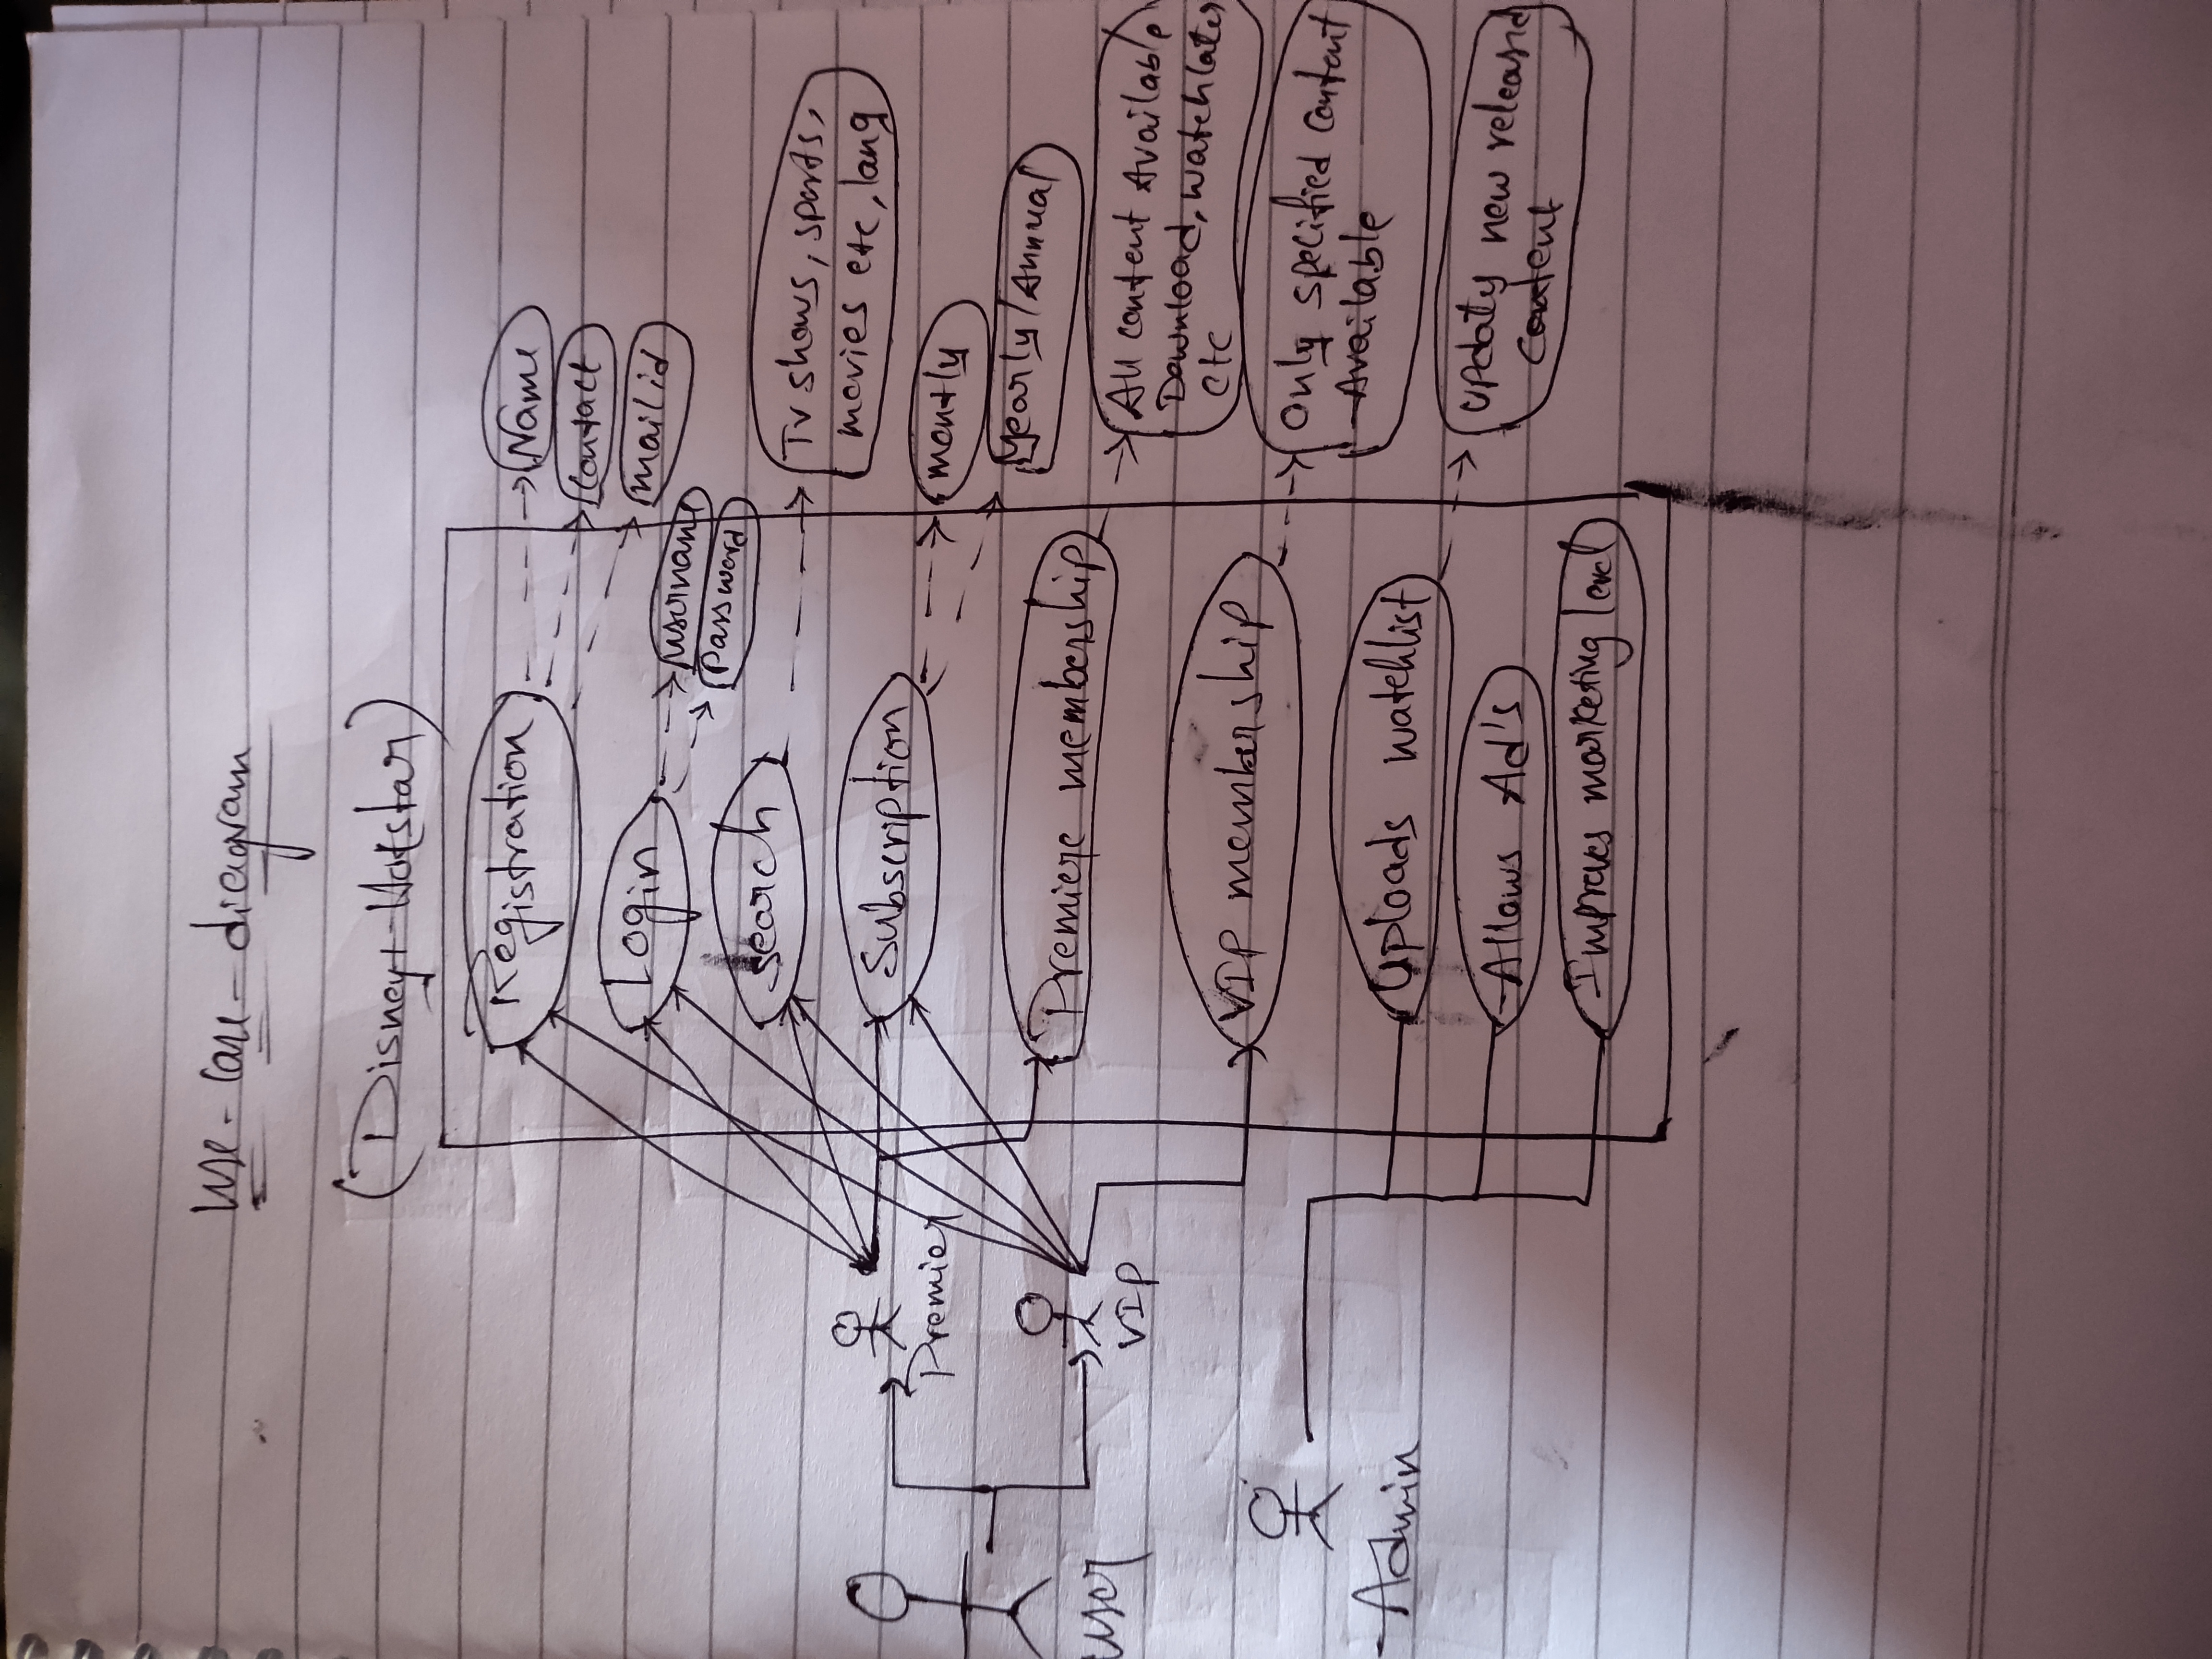 Use-case-diagram
(Disney+Hotstar)
Registration
Name
Contact
mailid
Login
username
Password
Search
Tv shows, sports,
movies etc, lang
Subscription
montly
yearly/Annual
Premier
User
VIP
Premiere membership
All content Available
Download, watchlater
etc
VIP membership
Only specified content
Available
Admin
Uploads watchlist
Updaty new released
content
Allows Ad's
Improves marketing level